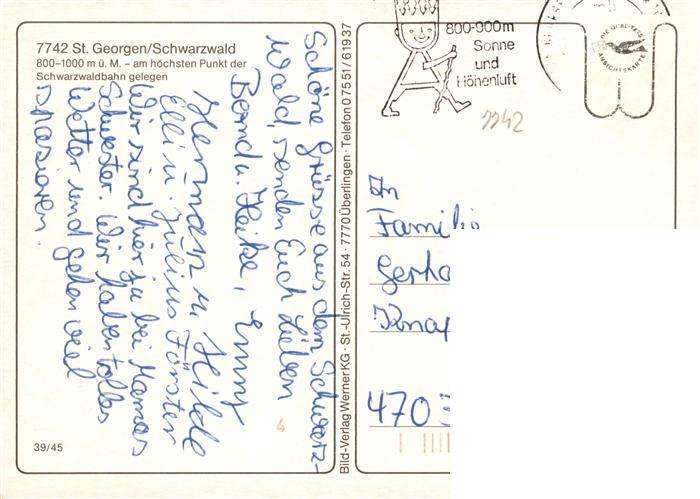 7742 St. Georgen/Schwarzwald
800–1000 m ü. M. – am höchsten Punkt der
Schwarzwaldbahn gelegen
Schöne Grüsse aus dem Schwarz-
wald, senden Euch Lieben
Bernd u. Heike, Emmy
Hermann u. Hilde
Elli u. Julius Förster
Wir sind hier ja bei Mamas
Schwester. Wir haben tolles
Wetter und gehen viel
spazieren.
39/45
Bild-Verlag Werner KG · St.-Ulrich-Str. 54 · 7770 Überlingen · Telefon 07551/61937
800-900m
Sonne
und
Höhenluft
DIE QUALITÄTS
ANSICHTSKARTE
7742
An
Familie
Gerha
Knap
470